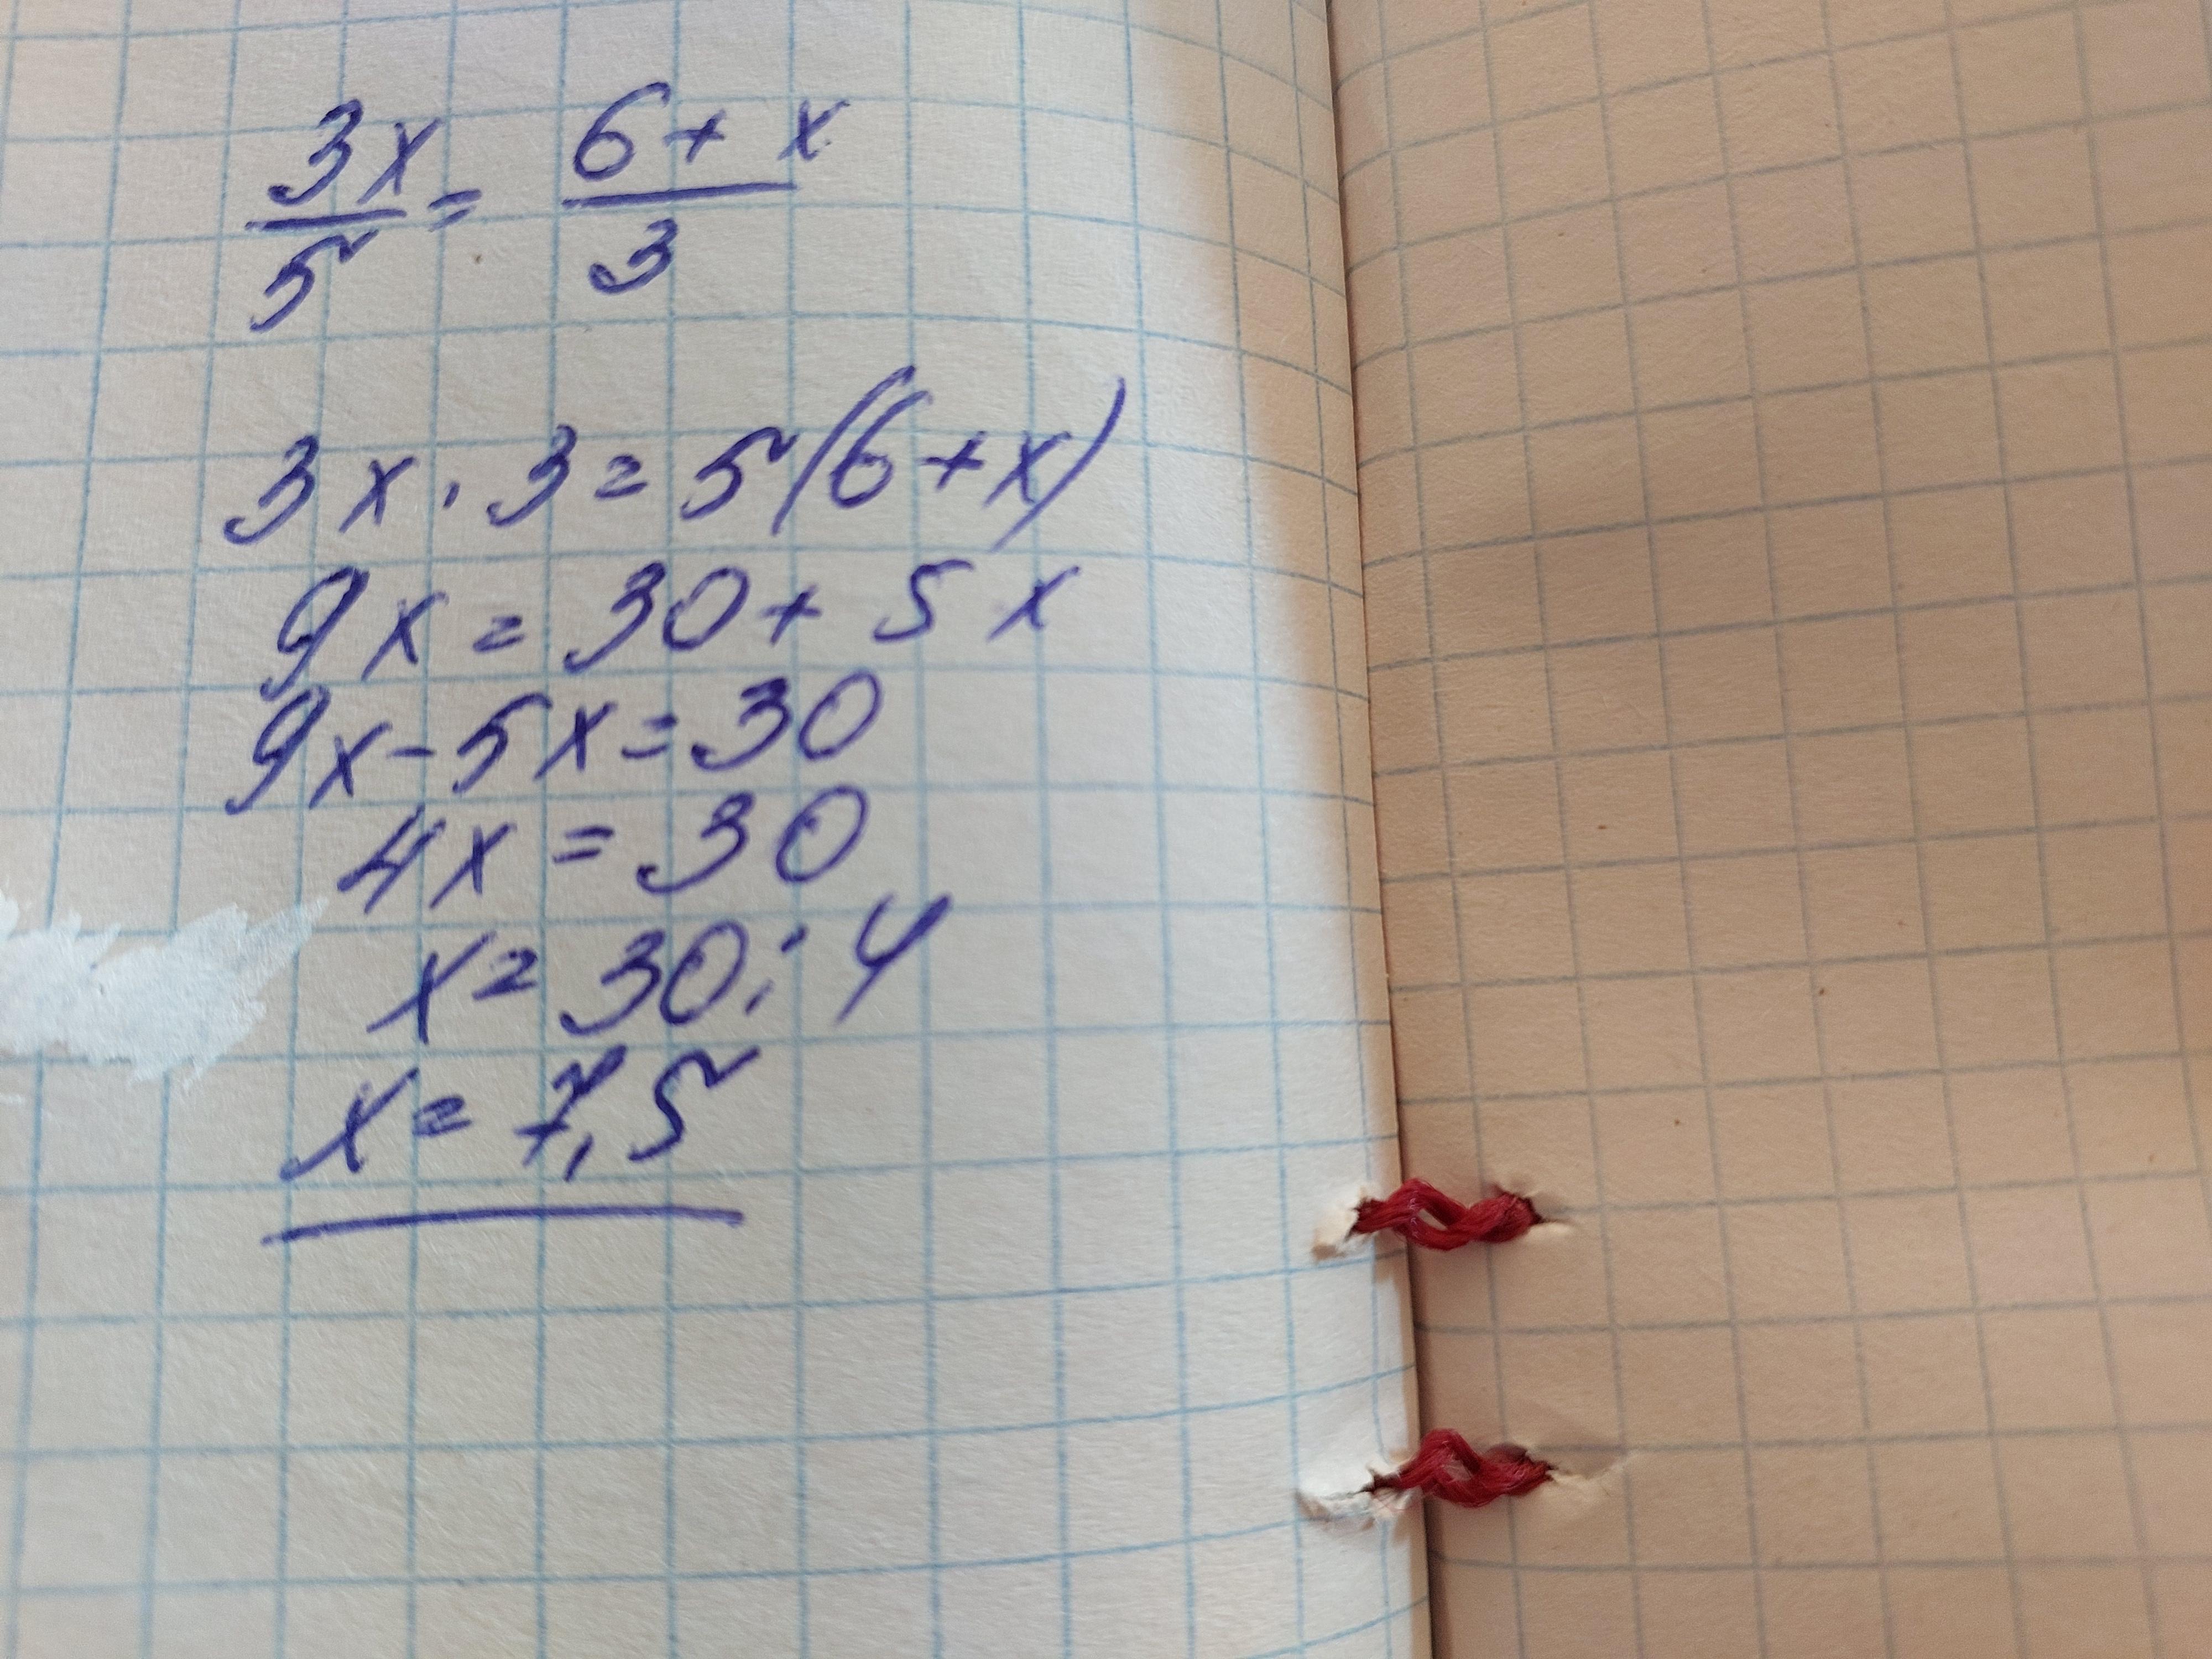 3x/5 = (6 + x)/3
3x · 3 = 5(6 + x)
9x = 30 + 5x
9x - 5x = 30
4x = 30
x = 30 : 4
x = 7,5